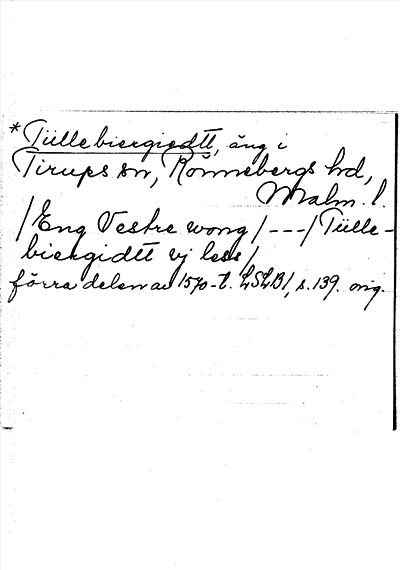 *Tüllebiergiedtt, äng i
Tirups sn, Rönnebergs hd,
Malm. l.
/Eng Vestre wong/ --- /Tülle-
biergidtt vj less/
förra delen av 1570-t. LSLB1, s. 139. orig.